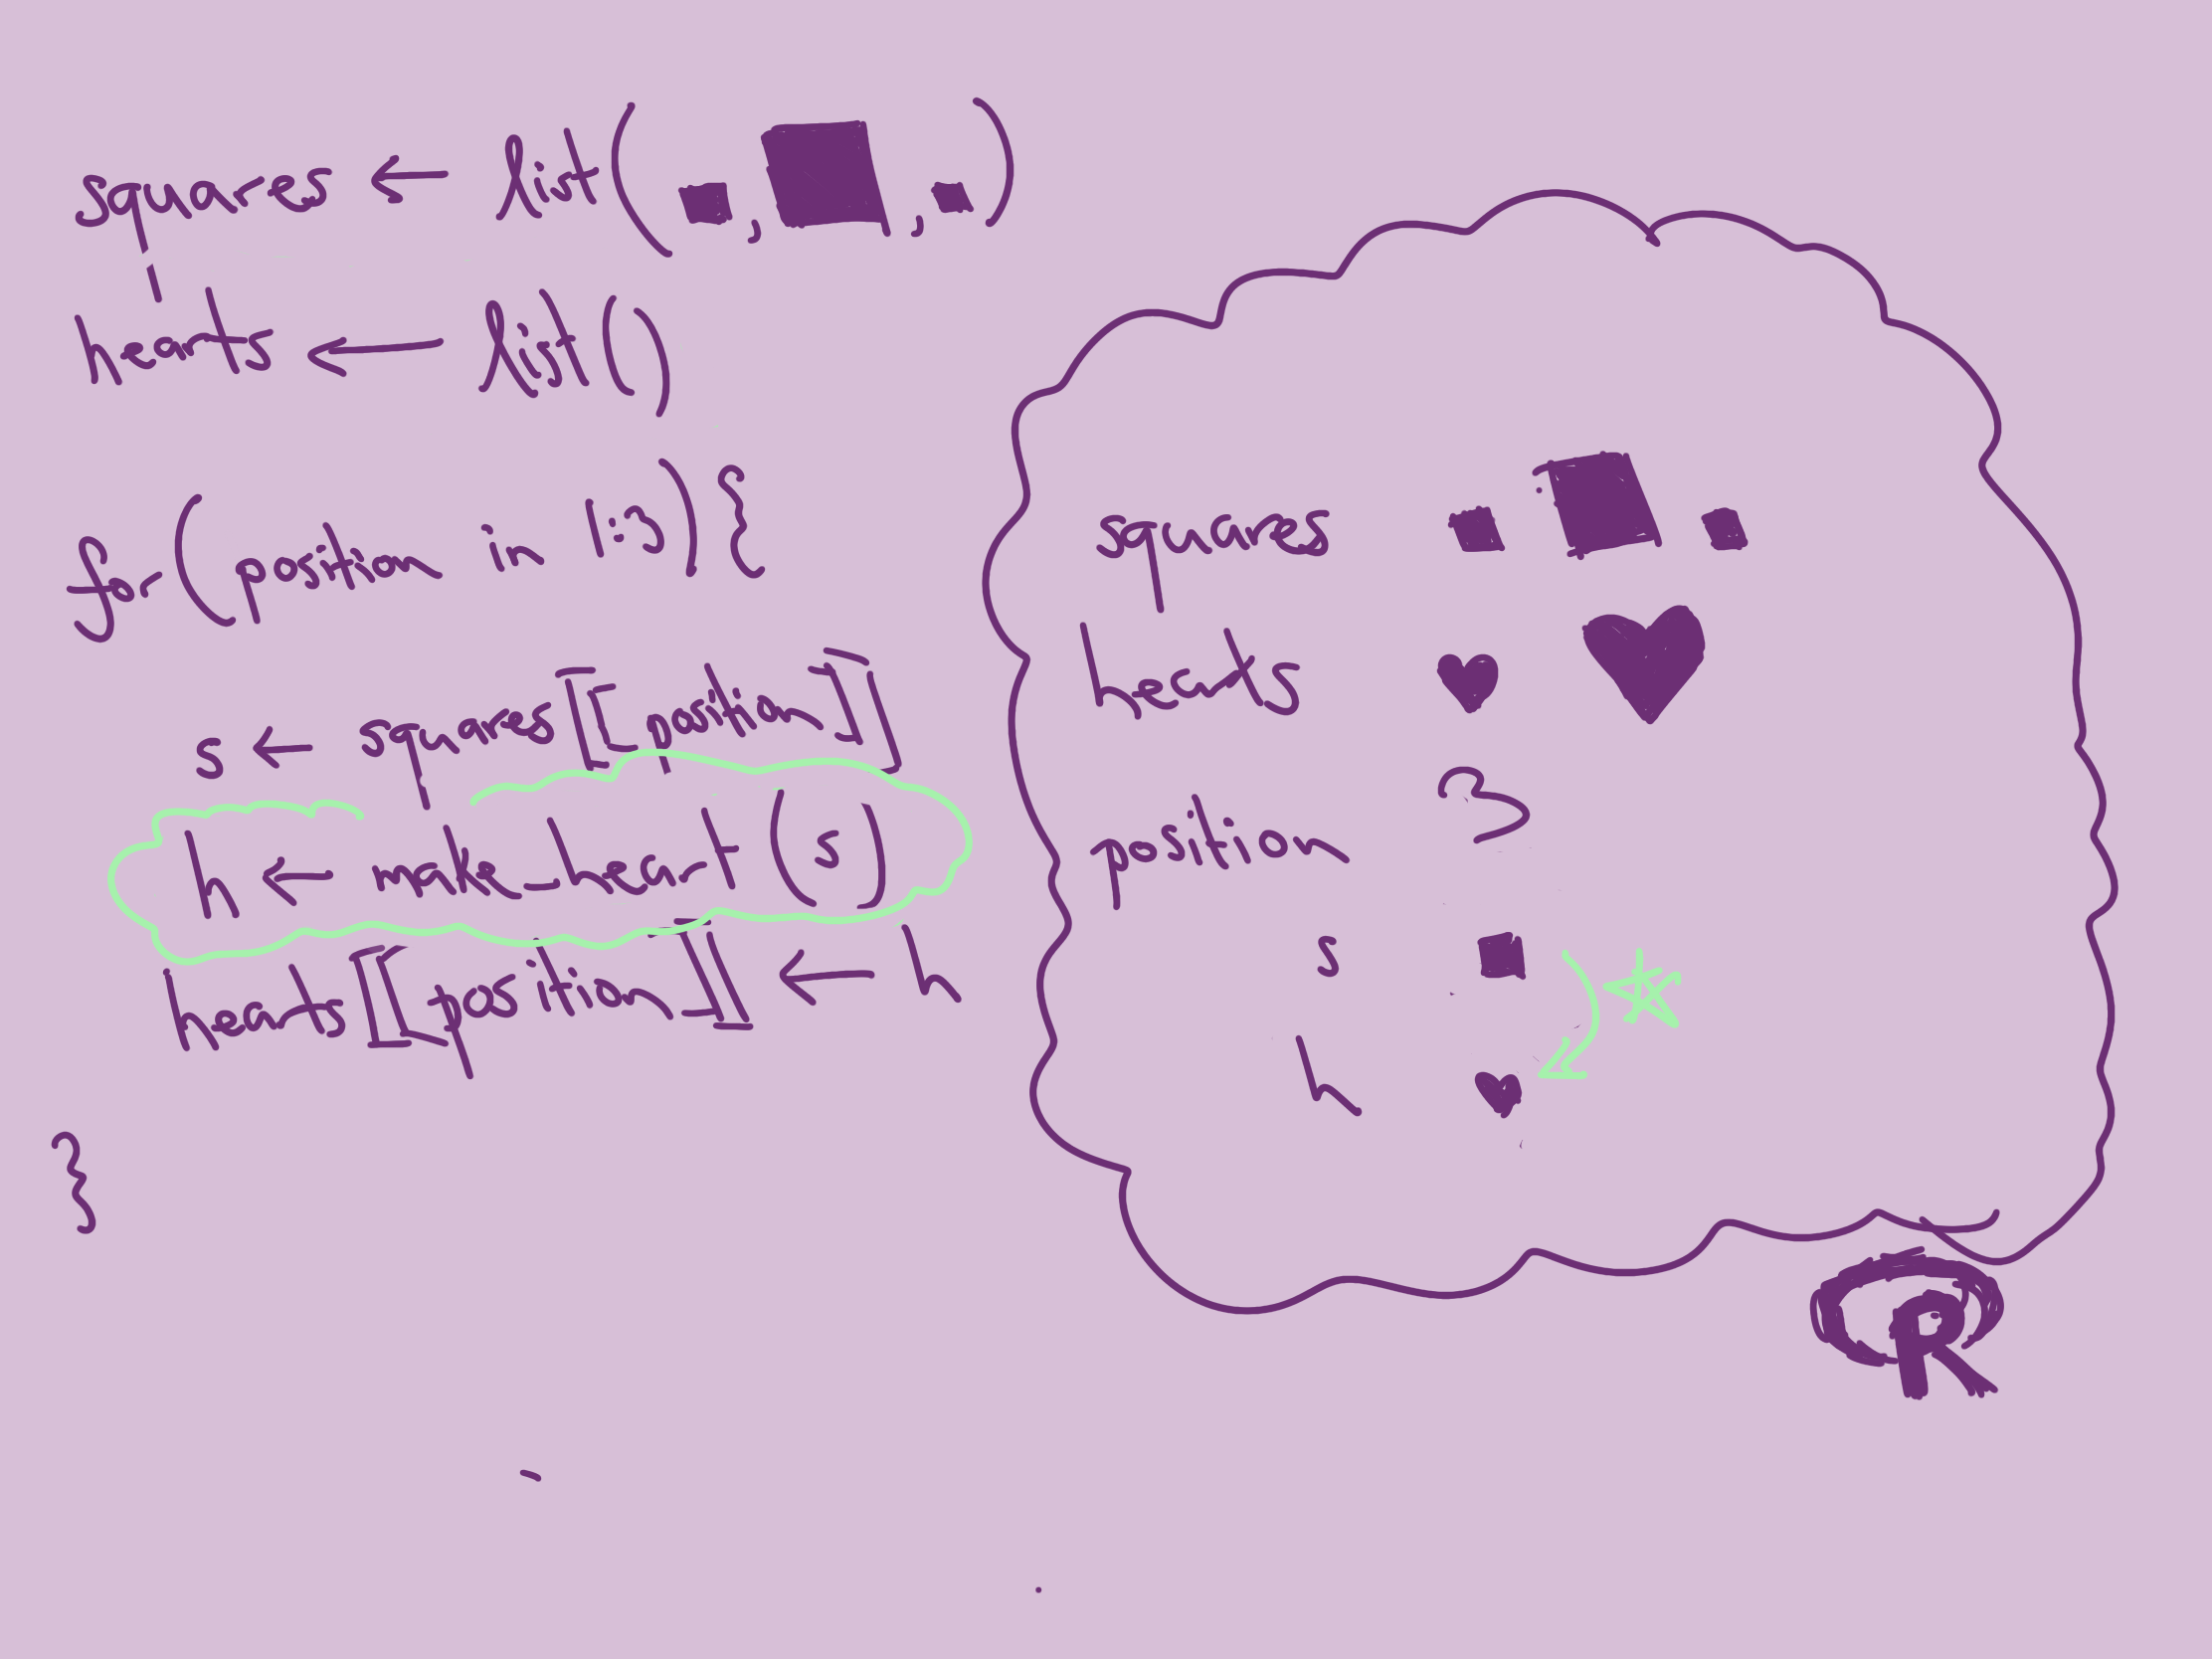 squares ← list( , , )
hearts ← list()
for (position in 1:3) {
s ← squares[[position]]
h ← make_heart(s)
hearts[[position]] ← h
}
squares
hearts
position 3
s
h
R